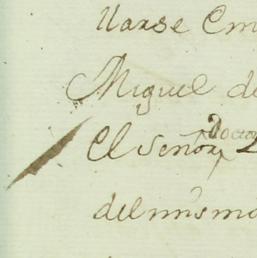 llarse Em
Miguel de
El Señor Doctor
del mismo